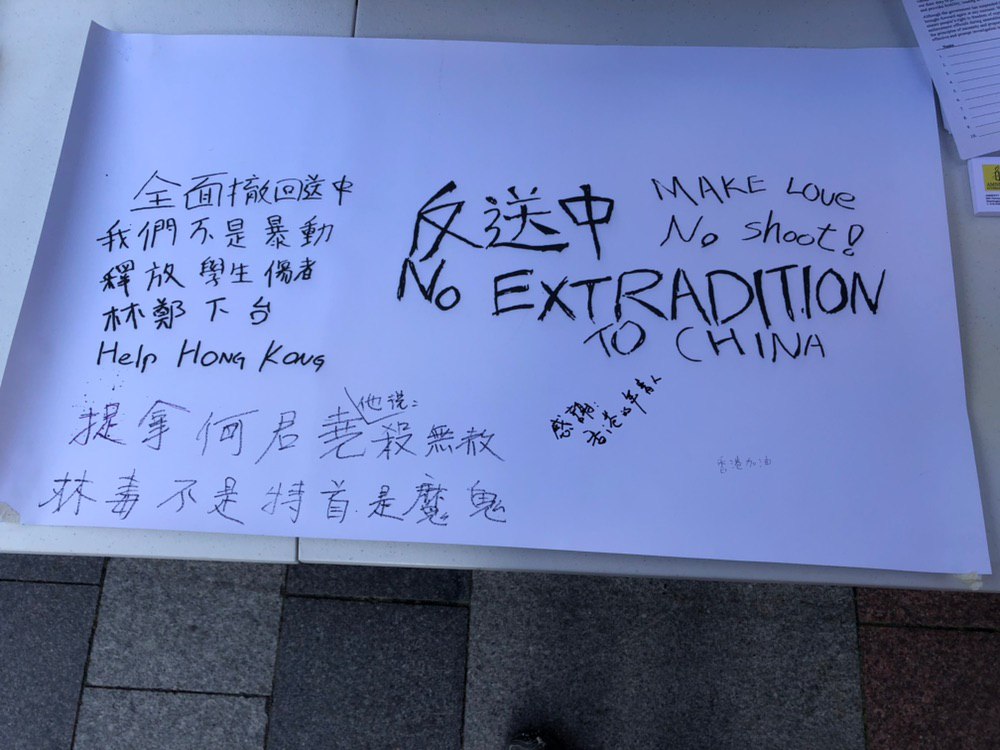 全面撤回送中
我們不是暴動
釋放學生傷者
林鄭下台
Help HONG KONG
反送中
NO EXTRADITION
TO CHINA
MAKE LOVE
No shoot!
捉拿何君堯他说:殺無赦
林毒不是特首是魔鬼
感謝:
香港的年青人
香港加油